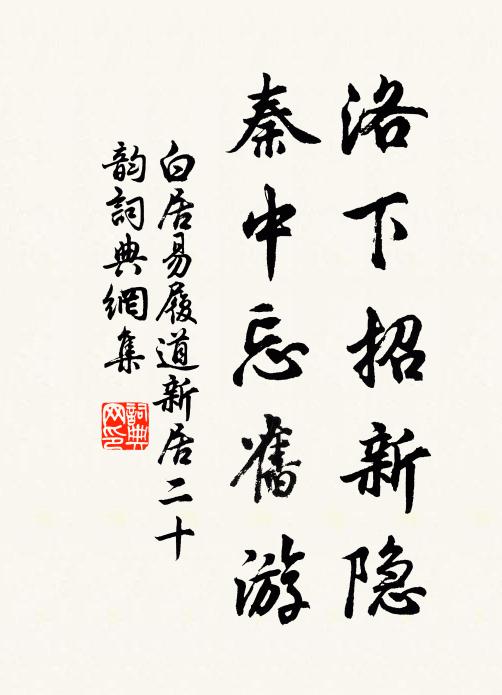 洛下招新隐
秦中忘舊游
白居易履道新居二十
韵詞典網集
詞典
网印